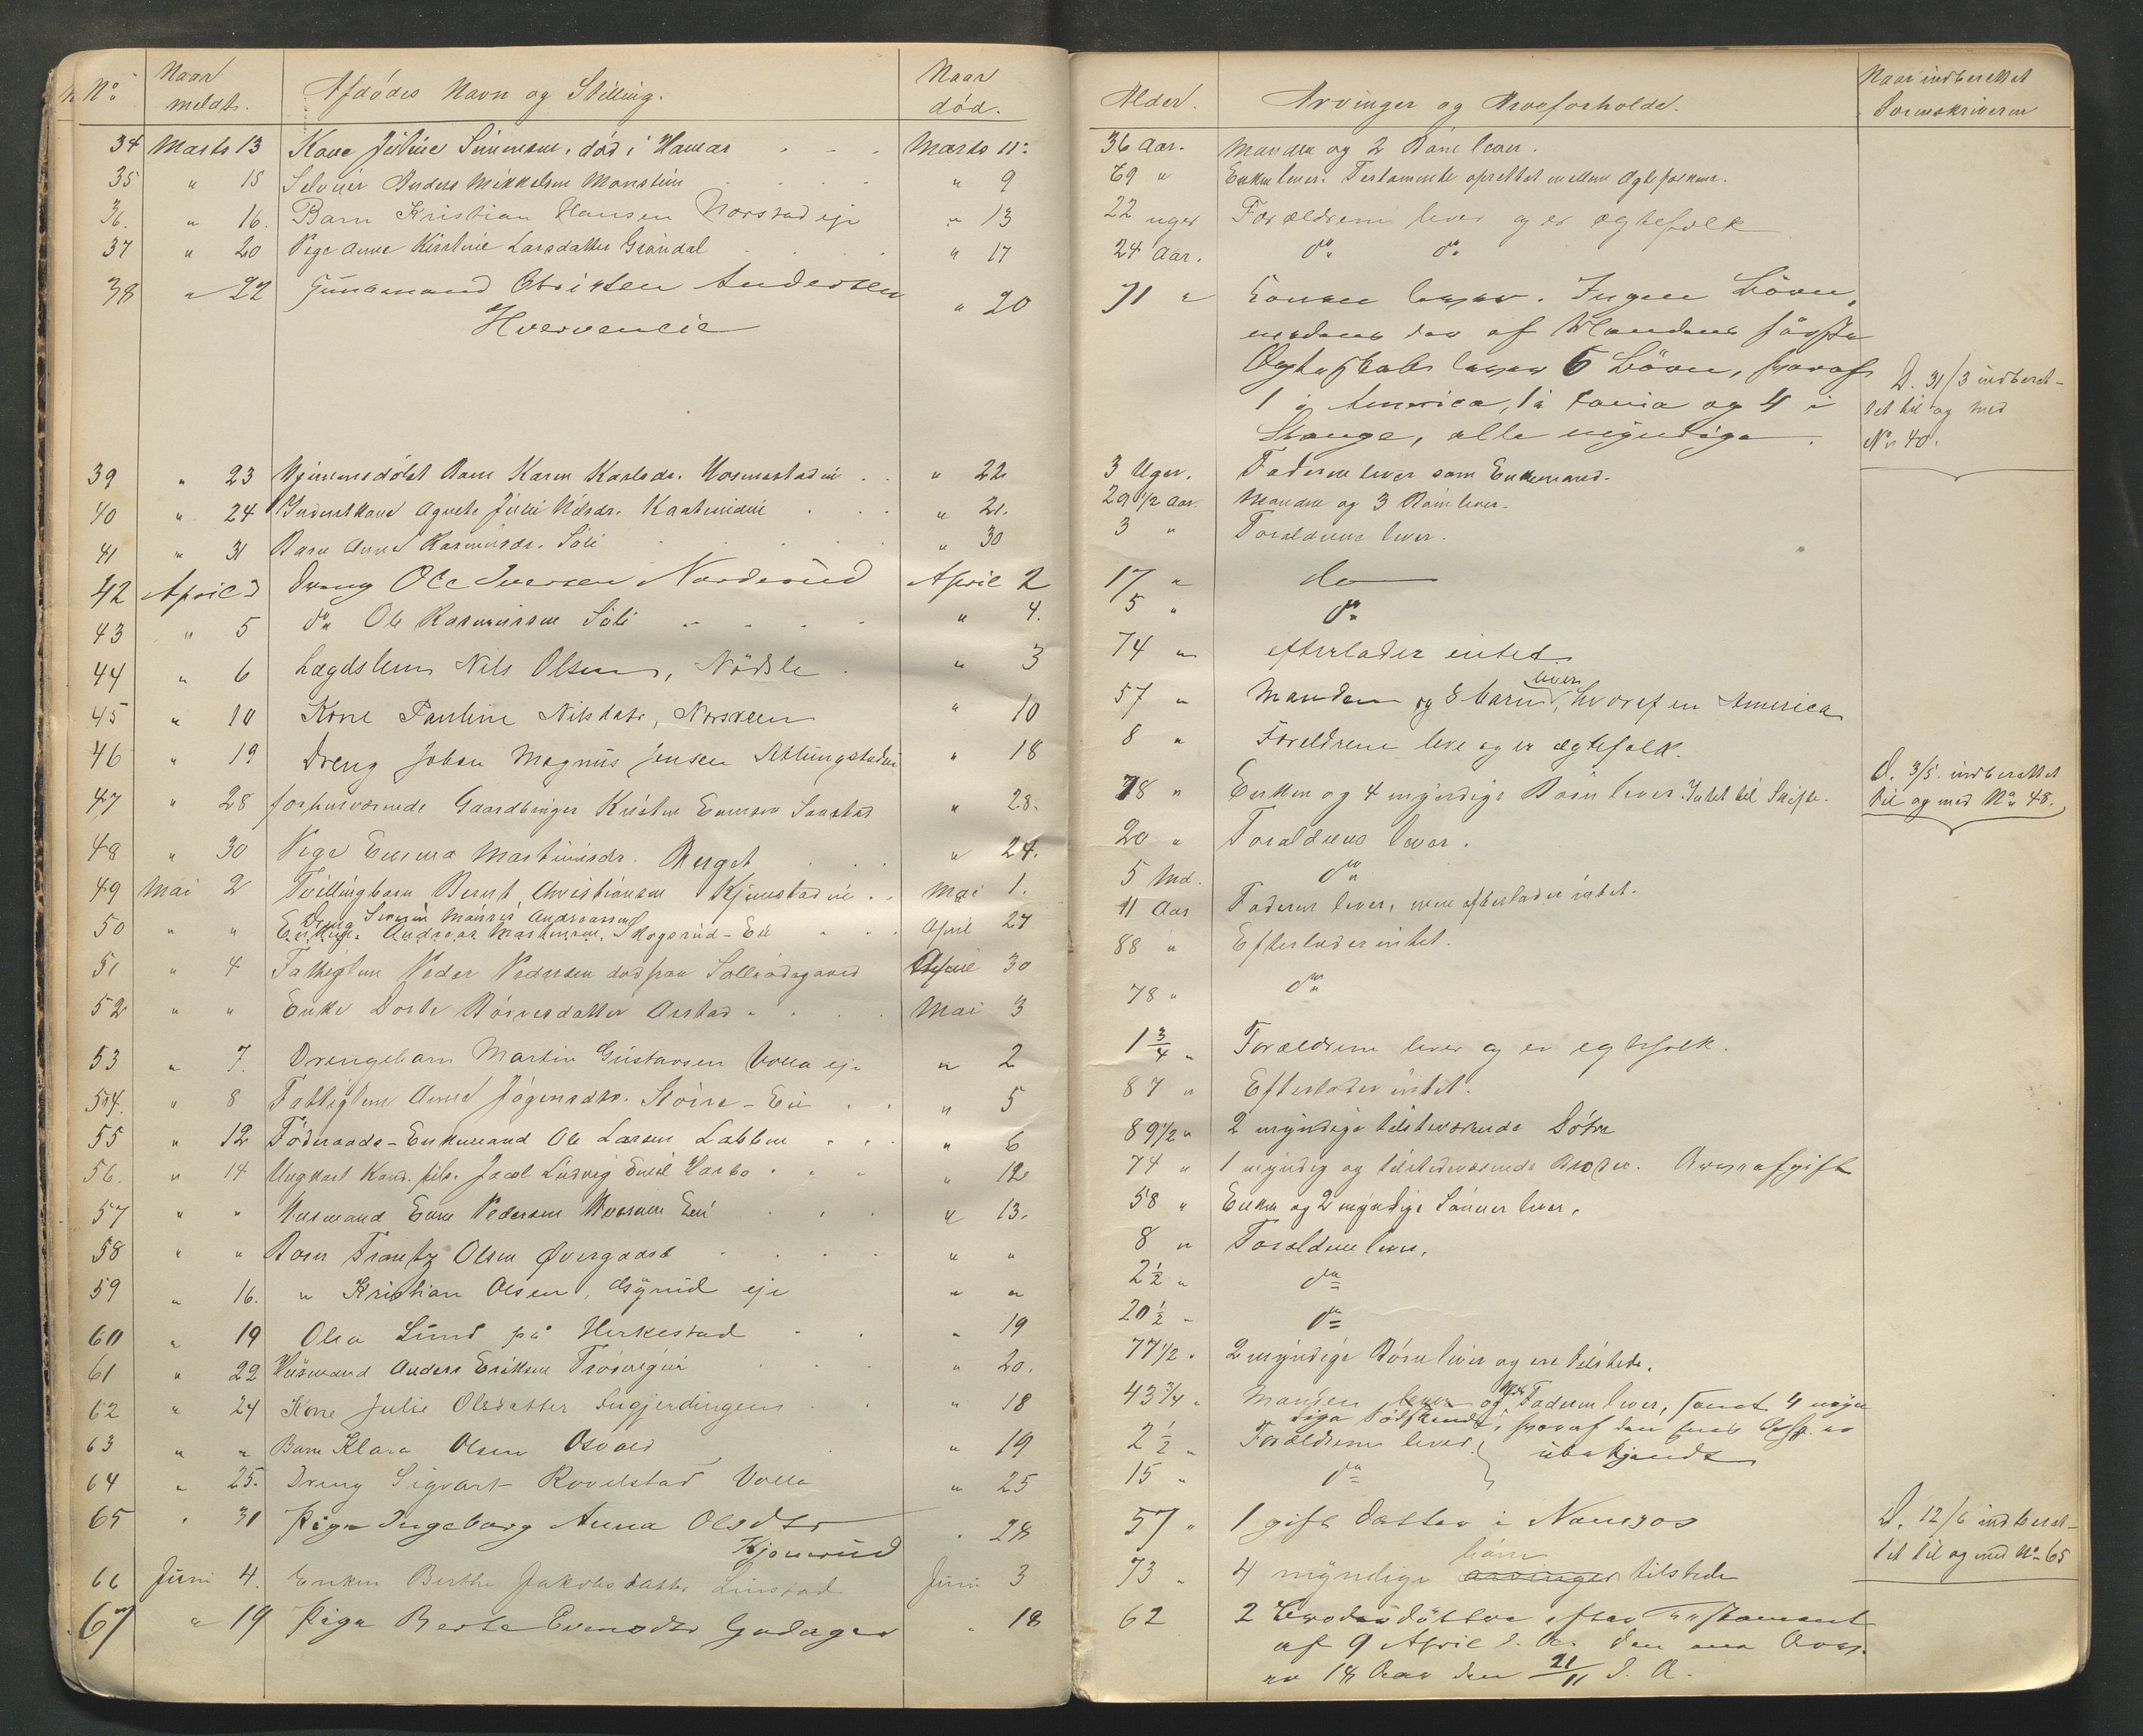 No. Naar meldt. Afdödes Navn og Stilling. Naar död. Alder. Arvinger og Arveforholde. Naar indberettet Sorenskriveren
34 Marts 13 Kone Juline Simensen, död i Hamar Marts 11. 36 Aar. Manden og 2 Börn lever.
35 " 15 Selveier Anders Mikkelsen " 9 69 " Enken lever. Testamente oprettet mellem Ægtefolkene.
36. " 16. Barn Kristian Hansen Norstad eje " 13 22 uger Forældrene lever og er ægtefolk
37 " 20 Pige Anne Kirstine Larsdatter Gröndal " 17 24 Aar. do do
38 " 22 Christen Andersen " 20 71 " Konen lever. Ingen Börn,
Hverveneie medens der af Mandens förste
Ægteskab lever 6 Börn, hvoraf
1 i America, 1 i og 4 i
Stange, alle myndige.
D. 31/3 indberet-
tet til og med
No 40.
39 " 23 Barn Karen Karlsdr. " 22 3 Uger. Faderen lever som Enkemand.
40 " 24 Agnete Julie Nilsdr. " 21. 29 1/2 Aar. Manden og 3 Börn lever.
41 " 31 Barn Anne Rasmusdr. Söli " 30 3 " Forældrene lever.
42 April 3 Dreng Ole Iversen Norderud April 2 17 " do
43 " 5 do Ole Rasmussen Söli " 4. 5 " do
44 " 6 Lægdslem Nils Olsen, Nödsle " 3 74 " efterlader intet.
45 " 10 Kone Pauline Nilsdatr, Norsveen " 10 57 " Manden og 8 barn lever, hvoraf en America
46 " 19 Dreng Johan Magnus Jensen " 18 8 " Foreldrene leve og er ægtefolk.
47 " 28 forhenværende Gaardbruger Kristen Evensen " 28. 78 " Enken og 4 myndige Börn lever. Intet til Skifte.
D. 3/5. indberettet
til og med No 48.
48 " 30 Pige Emma Martinusdr. Berget " 24. 20 " Forældrene lever.
49 Mai 2 Tvillingbarn Bernt Christiansen Mai 1. 5 Md. do
50 " " Dreng Andreassen Skogsrud-Eie April 27 11 Aar Faderen lever, men efterlader intet.
51 " 4 Fattiglem Peder Pedersen död paa April 30 88 " Efterlader intet.
52 " " Enke Dorte Aarstad Mai 3 78 " do
53 " 7. Drengebarn Martin Gustavsen Volla eje " 2 1 3/4 " Forældrene lever og er egtefolk.
54. " 8 Fattiglem Anne Jögensdtr. " 5 87 " Efterlader intet.
55 " 12 Föderaads-Enkemand Ole Larsen Labben " 6 89 1/2 " 2 myndige tilstedeværende Döttre
56. " 14 Ungkarl Kand. fil. Jacob Ludvig Emil " 12 74 " 1 myndig og tilstedeværende Broder. Arveafgift
57 " " Husmand Even Pedersen Eie " 13. 58 " Enken og 2 myndige Sönner lever.
58 " " Barn Frantz Olsen Övergaard " " 8 " Forældrene lever.
59 " 16. " Kristian Olsen, eje " " 2 1/2 " do
60 " 19 Olea Lund på Herkestad " 19 20 1/2 " do
61 " 22 Husmand Anders Eriksen " 20. 77 1/2 " 2 myndige Börn lever og ere tilstede.
62 " 24 Kone Julie Olsdatter " 18 43 3/4 " Manden lever og Faderen lever, samt 4 myn
dige Södskende, hvoraf den enes Opsh. er
ubekjendt
63 " " Barn Klara Olsen Osvold " 19 2 1/2 " Forældrene lever.
64 " 25. Dreng Sigvart Rovelstad Volla " 25 15 " do
65 " 31 Pige Ingeborg Anna Olsdtr " 28 57 " 1 gift Datter i Namsos
Kjonerud
D. 12/6 indberet-
tet til og med No 65
66 Juni 4. Enken Berthe Jakobsdatter Linstad Juni 3 73 " 4 myndige arvinger börn tilstede
67 " 19 Pige Berte Evensdtr Godager " 18 62 2 Broderdöttre efter Testament
af 9 April d. A. den ene
er 18 Aar den 21/11 d. A.